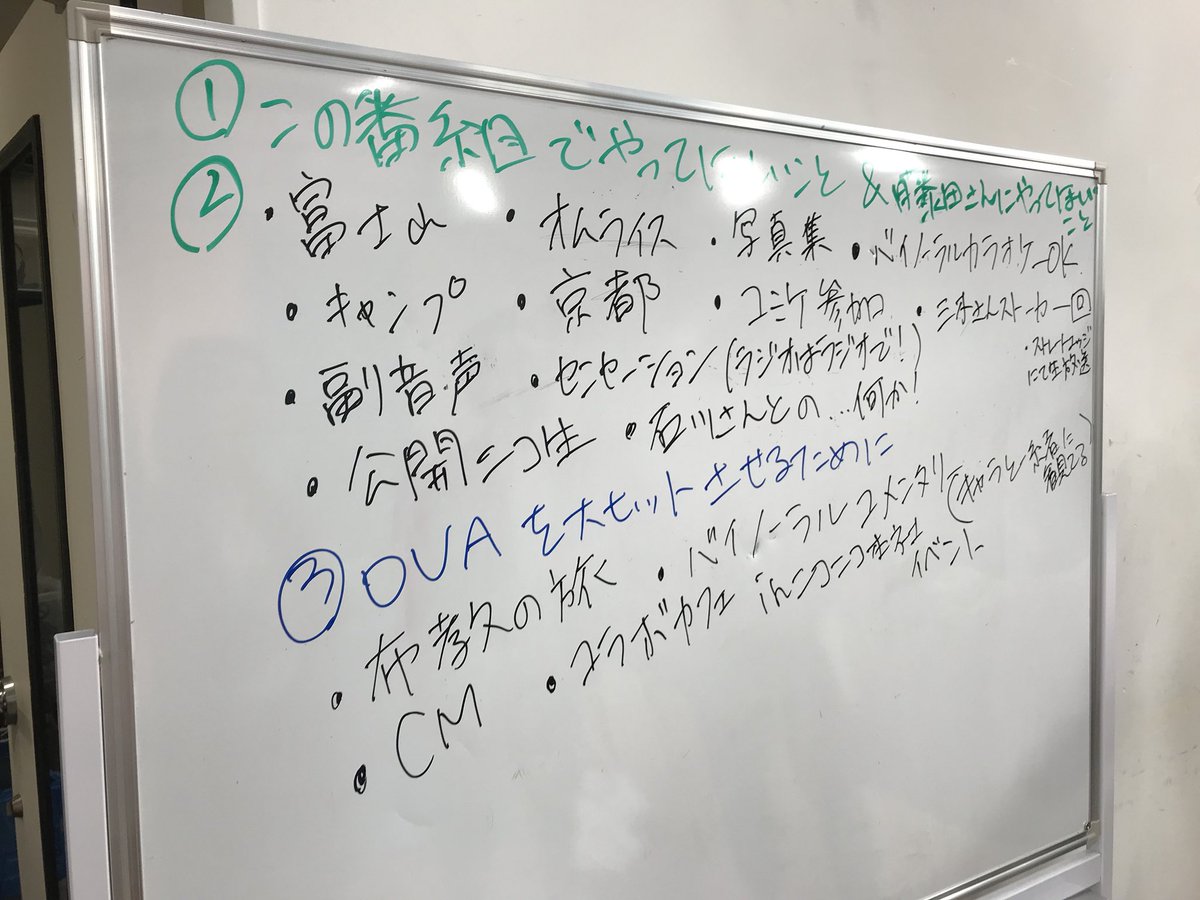 ① この番組でやってほしいこと & 日菜田さんにやってほしいこと
② ・富士山 ・オムライス ・写真集 ・バイノーラルカラオケ OK
・キャンプ ・京都 ・コミケ参加 ・三月さんストーカー回
・副音声 ・センセーション(ラジオはラジオで!) ・ストレートエッジにて生放送
・公開ニコ生 ・石川さんとの…何か!
③ OVAを大ヒットさせるために
・布教の旅 ・バイノーラルコメンタリー(キャラと一緒に観てる)
・CM ・コラボカフェ inニコニコ本社 イベント